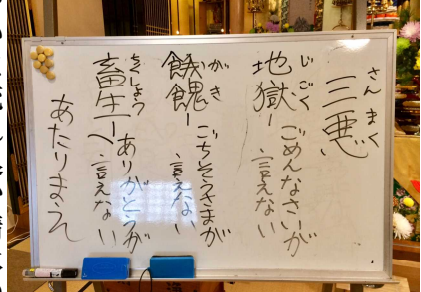 さんまく
三悪
じごく
地獄ーごめんなさいが
言えない
がき
餓鬼ーごちそうさまが
言えない
ちくしょう
畜生ーありがとうが
言えない
あたりまえ